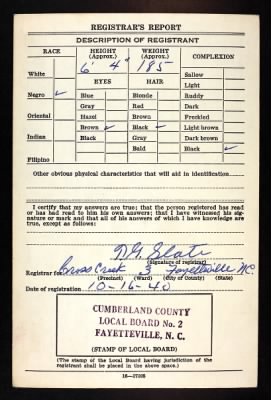 REGISTRAR'S REPORT
DESCRIPTION OF REGISTRANT
RACE HEIGHT (Approx.) WEIGHT (Approx.) COMPLEXION
6' 4" 185
White Sallow
EYES HAIR Light
Negro ✓ Blue Blonde Ruddy
Gray Red Dark
Oriental Hazel Brown Freckled
Brown ✓ Black ✓ Light brown
Indian Black Gray Dark brown
Bald Black ✓
Filipino
Other obvious physical characteristics that will aid in identification
I certify that my answers are true; that the person registered has read
or has had read to him his own answers; that I have witnessed his sig-
nature or mark and that all of his answers of which I have knowledge are
true, except as follows:
(Signature of registrar)
Registrar for Cross Creek 3 Fayetteville N.C.
(Precinct) (Ward) (City of County) (State)
Date of registration 10-16-40
CUMBERLAND COUNTY
LOCAL BOARD No. 2
FAYETTEVILLE, N. C.
(STAMP OF LOCAL BOARD)
(The stamp of the Local Board having jurisdiction of the
registrant shall be placed in the above space.)